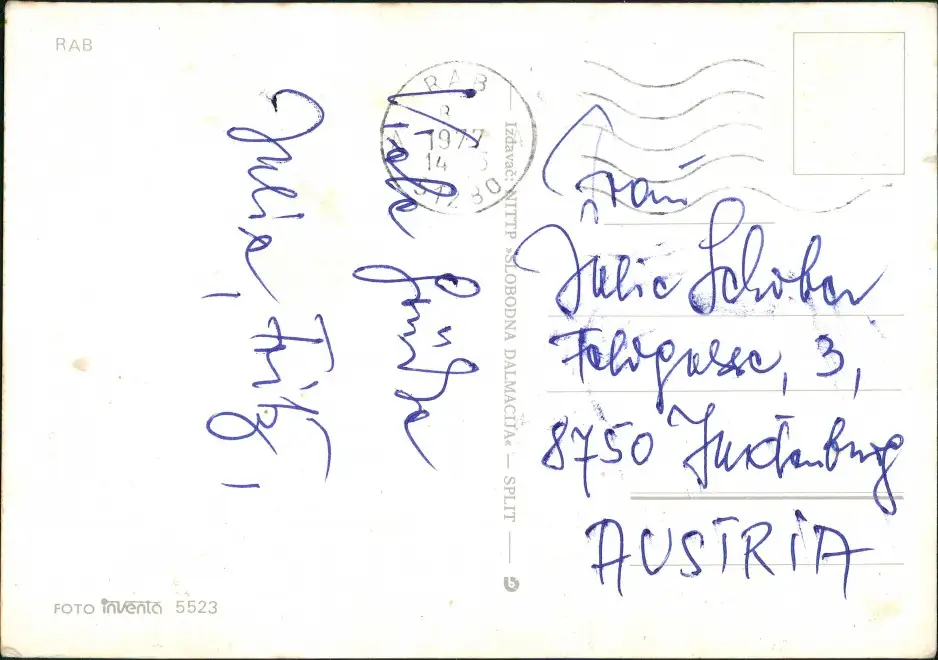 RAB
Viele
Grüße
Julia,
Fritz,
RAB
8
1977
14
51280
Izdavač: NITTP »SLOBODNA DALMACIJA« — SPLIT
Frau
Julia Schober
Feldgasse, 3,
8750 Judenburg
AUSTRIA
FOTO inventa 5523